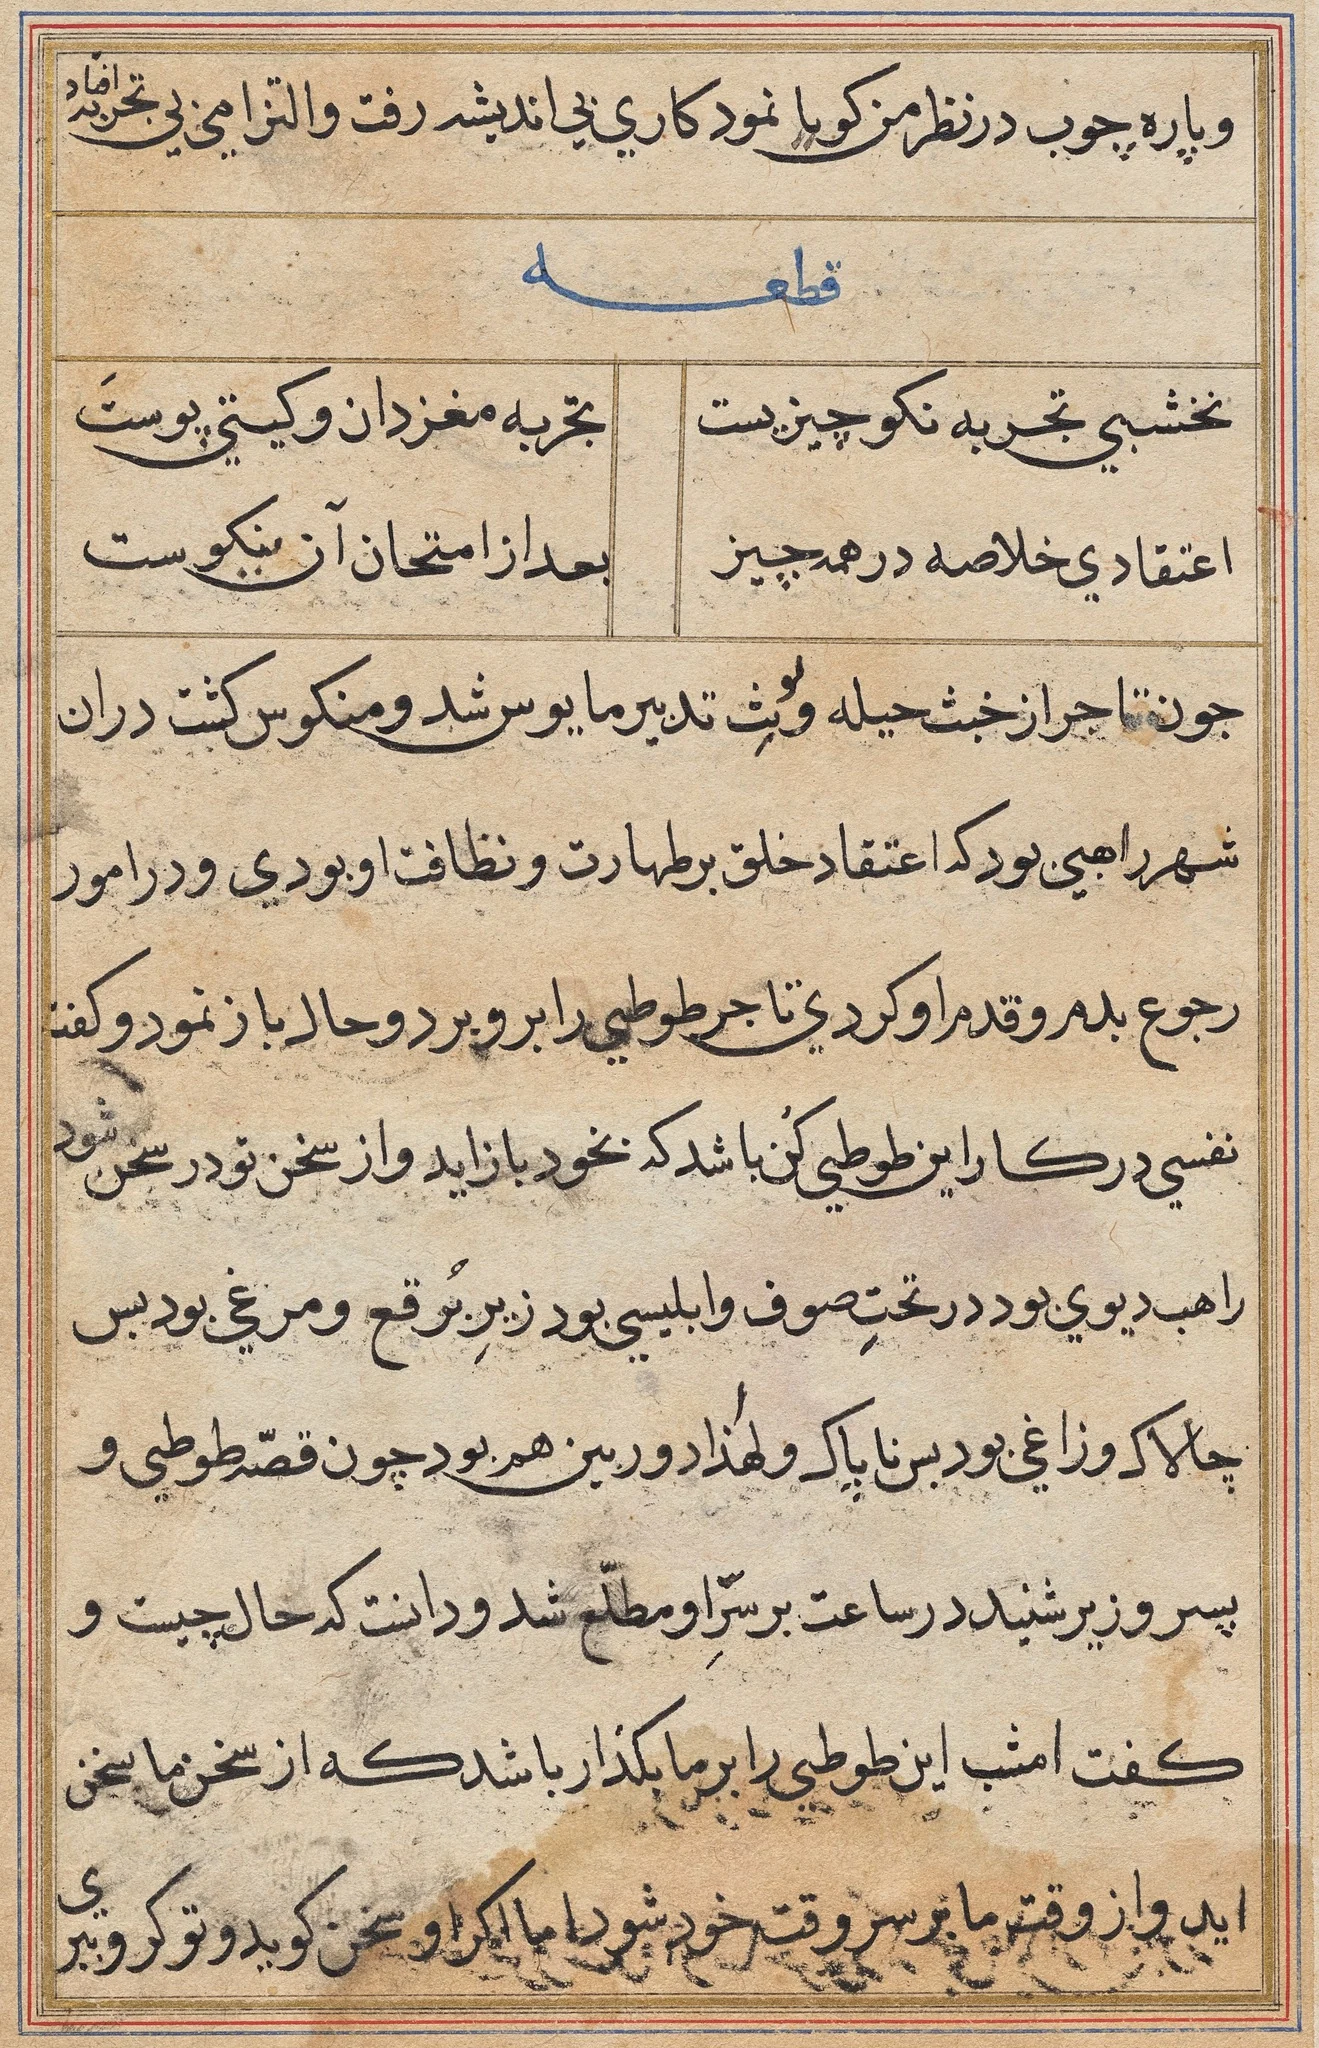 وپاره چوب در نظر من کویا نمود کاري بي اندیشه رفت والتزامي بي تجربه افتاد
قطعه
نخشبي تجربه نکو چیزیست تجربه مغز دان و کیتي پوست
اعتقادي خلاصه در همه چیز بعد از امتحان آن نیکوست
جون تاجر از خبث حیله ولوث تدبیر مایوس شد ومنکوس کشت دران
شهر راهبي بود که اعتقاد خلق بر طهارت ونظافت او بودي ودر امور
رجوع بدم وقدم او کردي تاجر طوطي را برو برد وحال باز نمود وکفت
نفسي در کار این طوطي کن باشد که بخود باز اید واز سخن تو در سخن شود
راهب دیوي بود در تحتِ صوف وابلیسي بود زیرِ بُرقع ومرغي بود بس
چالاک وزاغي بود بس ناپاک ولهٰذا دوربین هم بود چون قصّه طوطي و
پسر وزیر شنید در ساعت بر سرِّ او مطلّع شد ودانست که حال چیست و
کفت امشب این طوطي را بر ما بکذار باشد که از سخن ما سخن
اید واز وقت ما بر سر وقت خود شود اما اکر او سخن کوید وتو کرو ببري